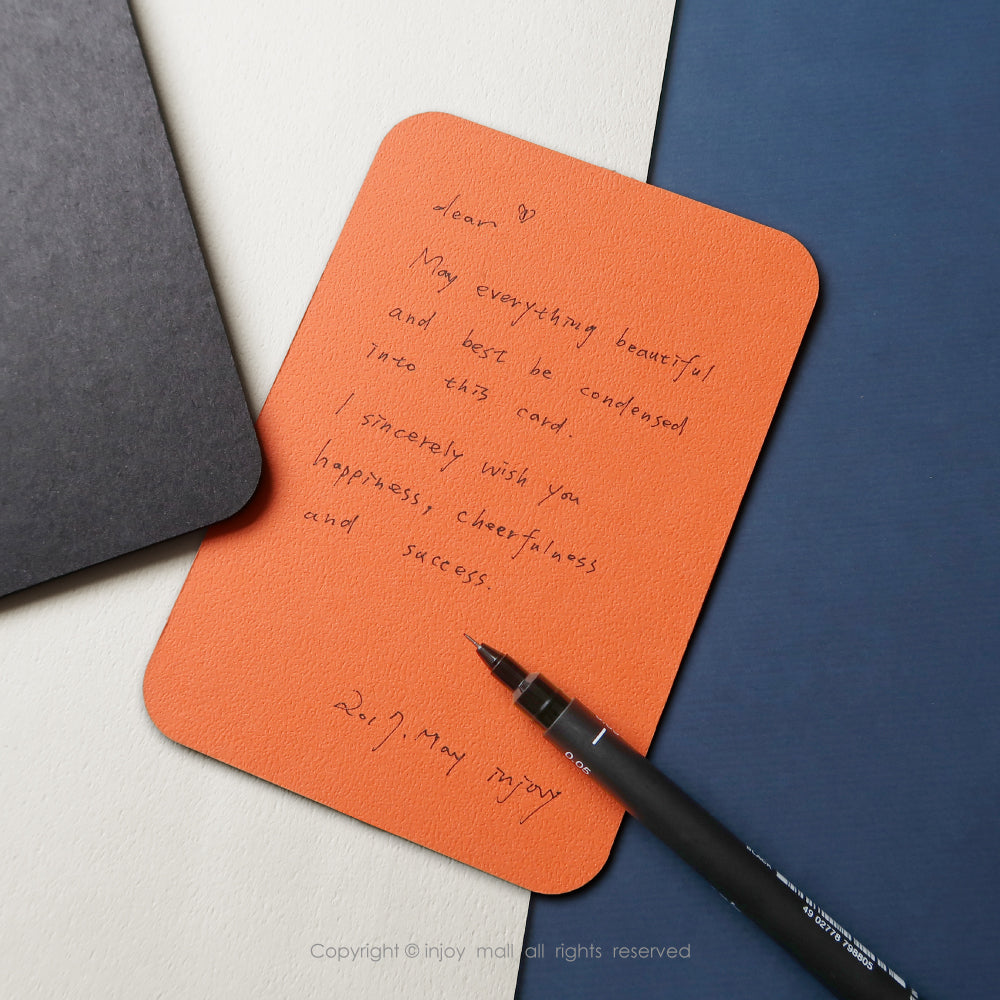 dear ♡
May everything beautiful
and best be condensed
into this card.
I sincerely wish you
happiness, cheerfulness
and success.
2017. May injoy
0.05
BLACK
49 02778 798805
Copyright © injoy mall all rights reserved